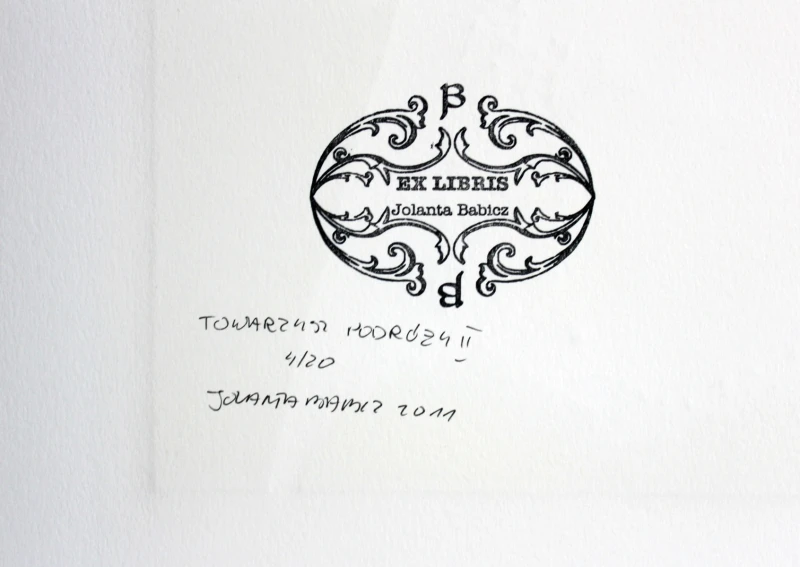 B
EX LIBRIS
Jolanta Babicz
B
TOWARZYSZ PODRÓŻY II
4/20
JOLANTA BABICZ 2011